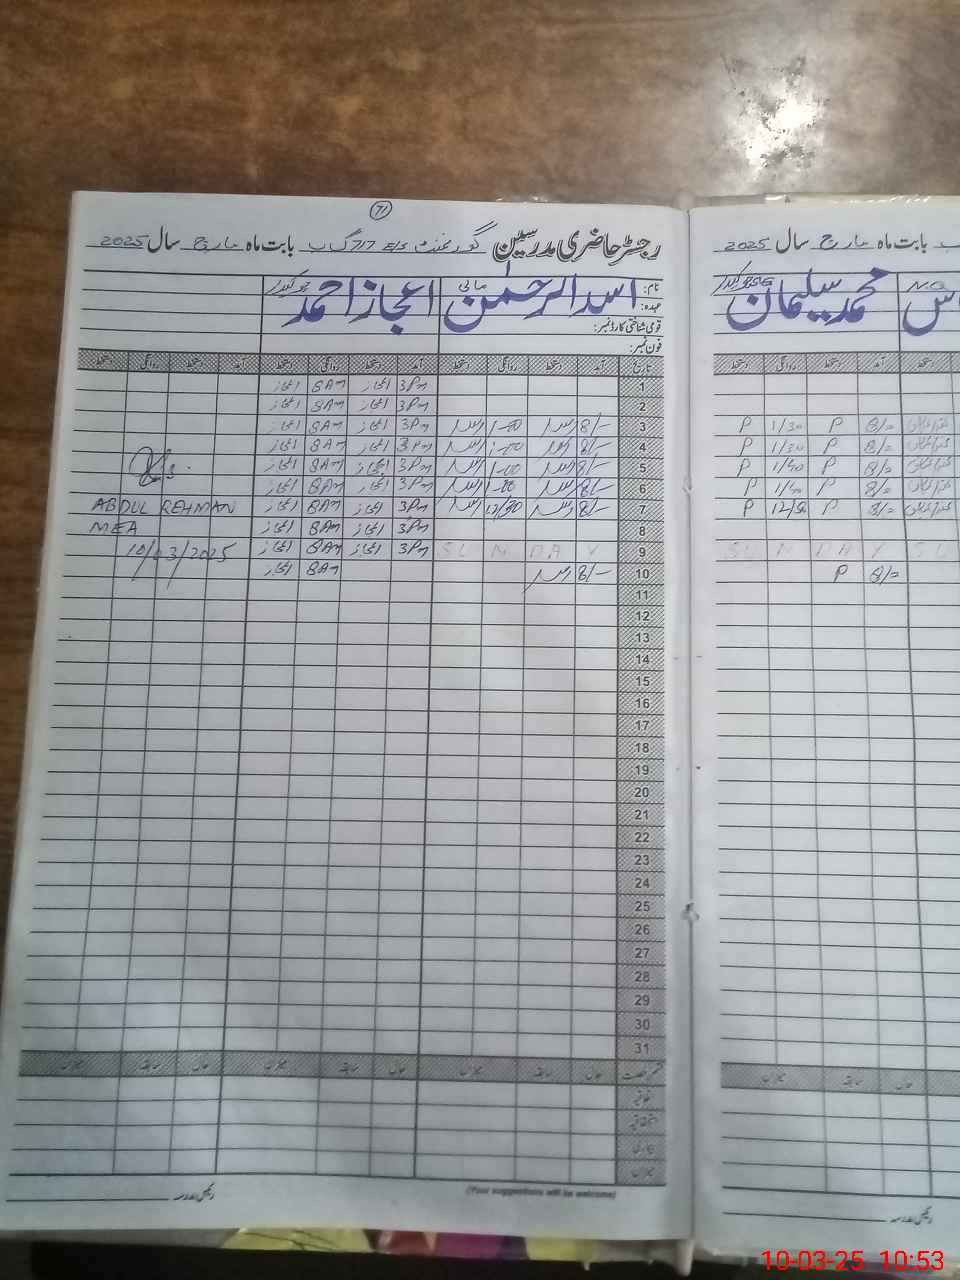 71
رجسٹر حاضری مدرسین گورنمنٹ E/S 717 گ ب بابت ماہ مارچ سال 2025
نام: اسد الرحمٰن مالی اعجاز احمد چوکیدار
عہدہ:
قومی شناختی کارڈ نمبر:
فون نمبر:
تاریخ آمد دستخط روانگی دستخط آمد دستخط روانگی دستخط آمد دستخط روانگی دستخط
1 3Pm اعجاز 8Am اعجاز
2 3Pm اعجاز 8Am اعجاز
3 8/- اسد 1-00 اسد 3Pm اعجاز 8Am اعجاز
4 8/- اسد 1-00 اسد 3Pm اعجاز 8Am اعجاز
5 8/- اسد 1-00 اسد 3Pm اعجاز 8Am اعجاز
6 8/- اسد 1-00 اسد 3Pm اعجاز 8Am اعجاز
7 8/- اسد 12/30 اسد 3Pm اعجاز 8Am اعجاز ABDUL REHMAN
8 3Pm اعجاز 8Am اعجاز MEA
9 SUNDAY 3Pm اعجاز 8Am اعجاز 10/03/2025
10 8/- اسد 8Am اعجاز
11
12
13
14
15
16
17
18
19
20
21
22
23
24
25
26
27
28
29
30
31
قسم رخصت حال سابقہ میزان حال سابقہ میزان حال سابقہ میزان
اتفاقیہ
بیماری
میزان
(Your suggestions will be welcome)
رئیس مدرسہ
بابت ماہ مارچ سال 2025
محمد سلیمان چوکیدار
دستخط آمد دستخط روانگی دستخط
8/= P 1/30 P
8/= P 1/30 P
8/= P 1/40 P
8/= P 1/40 P
8/= P 12/50 P
SU SUNDAY
8/= P
حال سابقہ میزان
رئیس مدرسہ
10-03-25 10:53